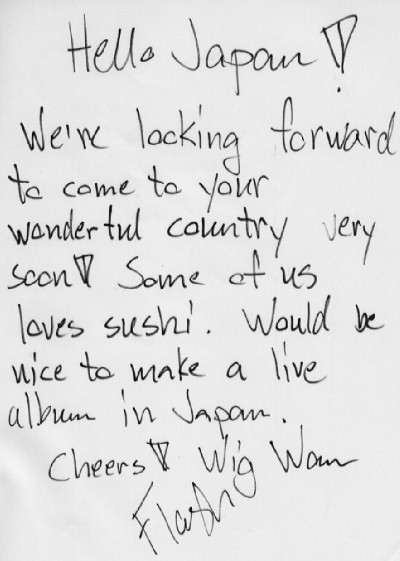 Hello Japan!
We're looking forward
to come to your
wonderful country very
soon! Some of us
loves sushi. Would be
nice to make a live
album in Japan.
Cheers! Wig Wam
Flash